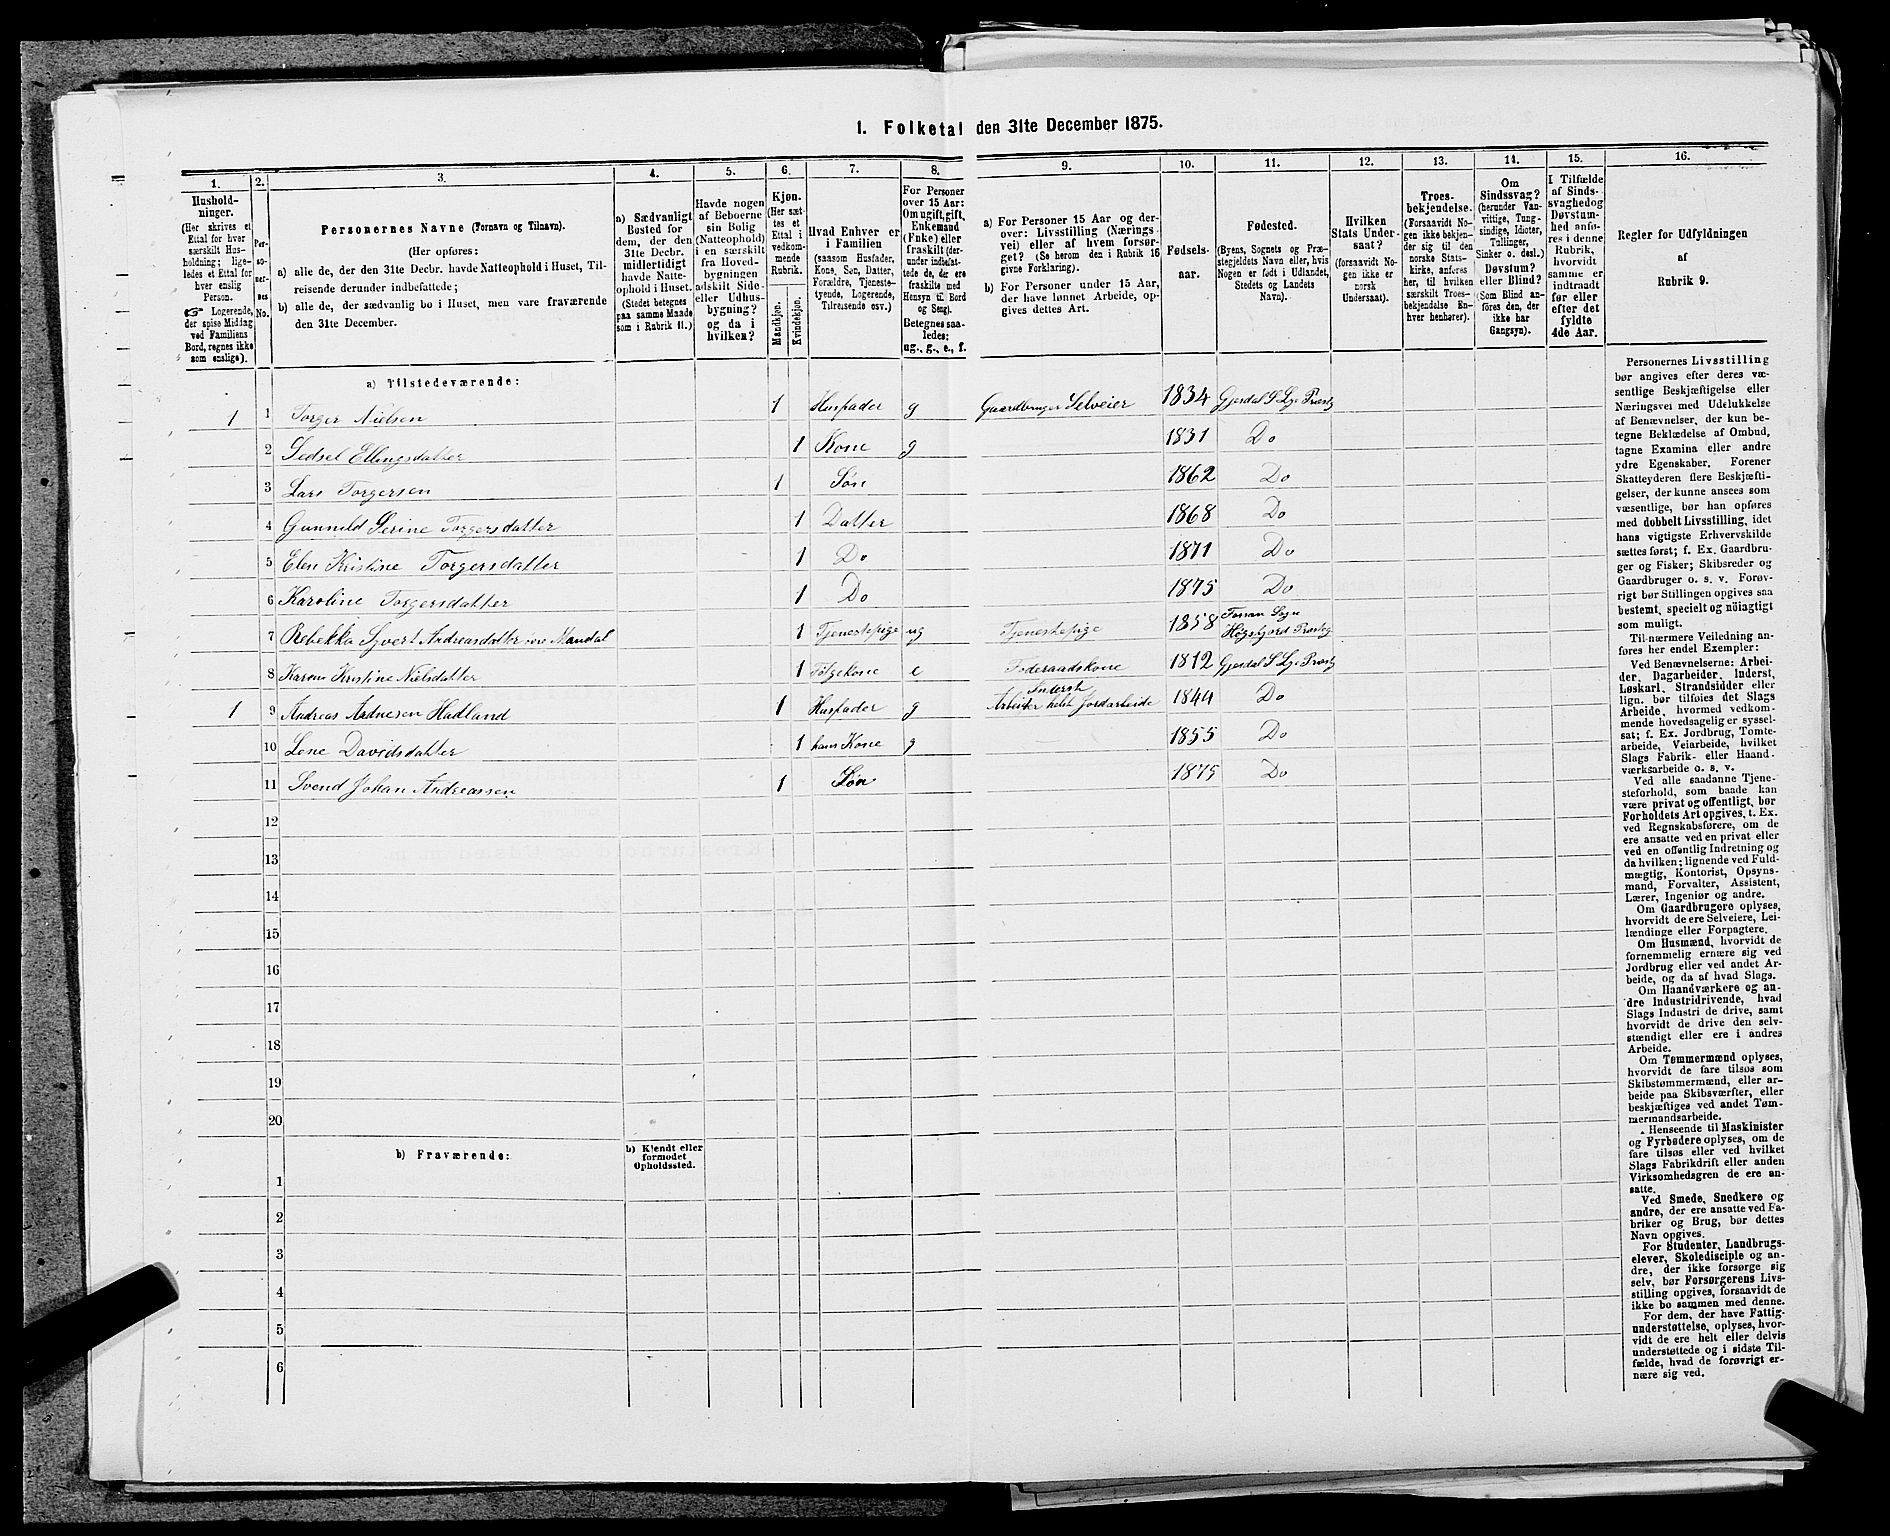 1. Folketal den 31te December 1875.
1. 2. 3. 4. 5. 6. 7. 8. 9. 10. 11. 12. 13. 14. 15. 16.
Hushold-
ninger.
(Her skrives et
Ettal for hver
særskilt Hus-
holdning; lige-
ledes et Ettal for
hver enslig
Person.
☞ Logerende,
der spise Middag
ved Familiens
Bord, regnes ikke
som enslige).
Per-
so-
ner-
nes
No.
Personernes Navne (Fornavn og Tilnavn).
(Her opføres:
a) alle de, der den 31te Decbr. havde Natteophold i Huset, Til-
reisende derunder indbefattede;
b) alle de, der sædvanlig bo i Huset, men vare fraværende
den 31te December.
a) Sædvanligt
Bosted for
dem, der den
31te Decbr.
midlertidigt
havde Natte-
ophold i Huset.
(Stedet betegnes
paa samme Maade
som i Rubrik 11.)
Havde nogen
af Beboerne
sin Bolig
(Natteophold)
i en særskilt
fra Hoved-
bygningen
adskilt Side-
eller Udhus-
bygning?
og da i
hvilken?
Kjøn.
(Her sæt-
tes et
Ettal i
vedkom-
mende
Rubrik.
Mandkjøn.
Kvindekjøn.
Hvad Enhver er
i Familien
(saasom Husfader,
Kone, Søn, Datter,
Forældre, Tjeneste-
tyende, Logerende,
Tilreisende osv.)
For Personer
over 15 Aar:
Om ugift, gift,
Enkemand
(Enke) eller
fraskilt (der-
under indbefat-
tede de, der ere
fraskilte med
Hensyn til Bord
og Seng).
Betegnes saa-
ledes:
ug., g., e., f.
a) For Personer 15 Aar og der-
over: Livsstilling (Nærings-
vei) eller af hvem forsør-
get? (Se herom den i Rubrik 16
givne Forklaring).
b) For Personer under 15 Aar,
der have lønnet Arbeide, op-
gives dettes Art.
Fødsels-
aar.
Fødested.
(Byens, Sognets og Præ-
stegjeldets Navn eller, hvis
Nogen er født i Udlandet,
Stedets og Landets
Navn).
Hvilken
Stats Under-
saat?
(forsaavidt No-
gen ikke er
norsk
Undersaat).
Troes-
bekjendelse.
(Forsaavidt No-
gen ikke bekjen-
der sig til den
norske Stats-
kirke, anføres
her, til hvilken
særskilt Troes-
bekjendelse En-
hver henhører).
Om
Sindssvag?
(herunder Van-
vittige, Tung-
sindige, Idioter,
Tullinger,
Sinker o. desl.)
Døvstum?
eller Blind?
(Som Blind an-
føres den, der
ikke har
Gangsyn).
I Tilfælde
af Sinds-
svaghed og
Døvstum-
hed anfø-
res i denne
Rubrik,
hvorvidt
samme er
indtraadt
før eller
efter det
fyldte
4de Aar.
Regler for Udfyldningen
af
Rubrik 9.
a) Tilstedeværende:
1 1 Torger Nielsen 1 Husfader g Gaardbruger Selveier 1834 Gjesdal S Lye Præstg
2 Sedsel Ellingsdatter 1 Kone g 1831 Do
3 Lars Torgersen 1 Søn 1862 Do
4 Gunnild Serine Torgersdatter 1 Datter 1868 Do
5 Elen Kristine Torgersdatter 1 Do 1871 Do
6 Karoline Torgersdatter 1 Do 1875 Do
7 Rebekka Andreasdatter Mandal 1 Tjenestepige ug Tjenestepige 1858 Forsan Sogn
Høgsfjord Præstg
8 Karen Kristine Nielsdatter 1 e Føderaadskone 1812 Gjesdal S Lye Præstg
Inderst
1 9 Andreas Hadland 1 Husfader g Arbeider helst Jordarbeide 1849 Do
10 Lene Davidsdatter 1 hans Kone g 1855 Do
11 Svend Johan Andreassen 1 Søn 1875 Do
12
13
14
15
16
17
18
19
20
b) Fraværende:
b) Kjendt eller
formodet
Opholdssted.
1
2
3
4
5
6
Personernes Livsstilling
bør angives efter deres væ-
sentlige Beskjæftigelse eller
Næringsvei med Udelukkelse
af Benævnelser, der kun be-
tegne Beklædelse af Ombud,
tagne Examina eller andre
ydre Egenskaber. Forener
Skatteyderen flere Beskjæfti-
gelser, der kunne ansees som
væsentlige, bør han opføres
med dobbelt Livsstilling, idet
hans vigtigste Erhvervskilde
sættes først; f. Ex. Gaardbru-
ger og Fisker; Skibsreder og
Gaardbruger o. s. v. Forøv-
rigt bør Stillingen opgives saa
bestemt, specielt og nøiagtigt
som muligt.
Til nærmere Veiledning an-
føres her endel Exempler:
Ved Benævnelserne: Arbei-
der, Dagarbeider, Inderst,
Løskarl, Strandsidder eller
lign. bør tilføies det Slags
Arbeide, hvormed vedkom-
mende hovedsagelig er syssel-
sat; f. Ex. Jordbrug, Tomte-
arbeide, Veiarbeide, hvilket
Slags Fabrik- eller Haand-
værksarbeide o. s. v.
Ved alle saadanne Tjene-
steforhold, som baade kan
være privat og offentligt, bør
Forholdets Art opgives, t. Ex.
ved Regnskabsførere, om de
ere ansatte ved en privat eller
ved en offentlig Indretning og
da hvilken; lignende ved Fuld-
mægtig, Kontorist, Opsyns-
mand, Forvalter, Assistent,
Lærer, Ingeniør og andre.
Om Gaardbrugere oplyses,
hvorvidt de ere Selveiere, Lei-
lændinge eller Forpagtere.
Om Husmænd, hvorvidt de
fornemmelig ernære sig ved
Jordbrug eller ved andet Ar-
beide, og da af hvad Slags.
Om Haandværkere og an-
dre Industridrivende, hvad
Slags Industri de drive, samt
hvorvidt de drive den selv-
stændigt eller ere i andres
Arbeide.
Om Tømmermænd oplyses,
hvorvidt de fare tilsøs som
Skibstømmermænd, eller ar-
beide paa Skibsværfter, eller
beskjæftiges ved andet Tøm-
mermandsarbeide.
I Henseende til Maskinister
og Fyrbødere oplyses, om de
fare tilsøs eller ved hvilket
Slags Fabrikdrift eller anden
Virksomhedsgren de ere an-
satte.
Ved Smede, Snedkere og
andre, der ere ansatte ved Fa-
briker og Brug, bør dettes
Navn opgives.
For Studenter, Landbrugs-
elever, Skoledisciple og an-
dre, der ikke forsørge sig
selv, bør Forsørgerens Livs-
stilling opgives, forsaavidt de
ikke bo sammen med denne.
For dem, der have Fattig-
understøttelse, oplyses, hvor-
vidt de ere helt eller delvis
understøttede og i sidste Til-
fælde, hvad de forøvrigt er-
nære sig ved.